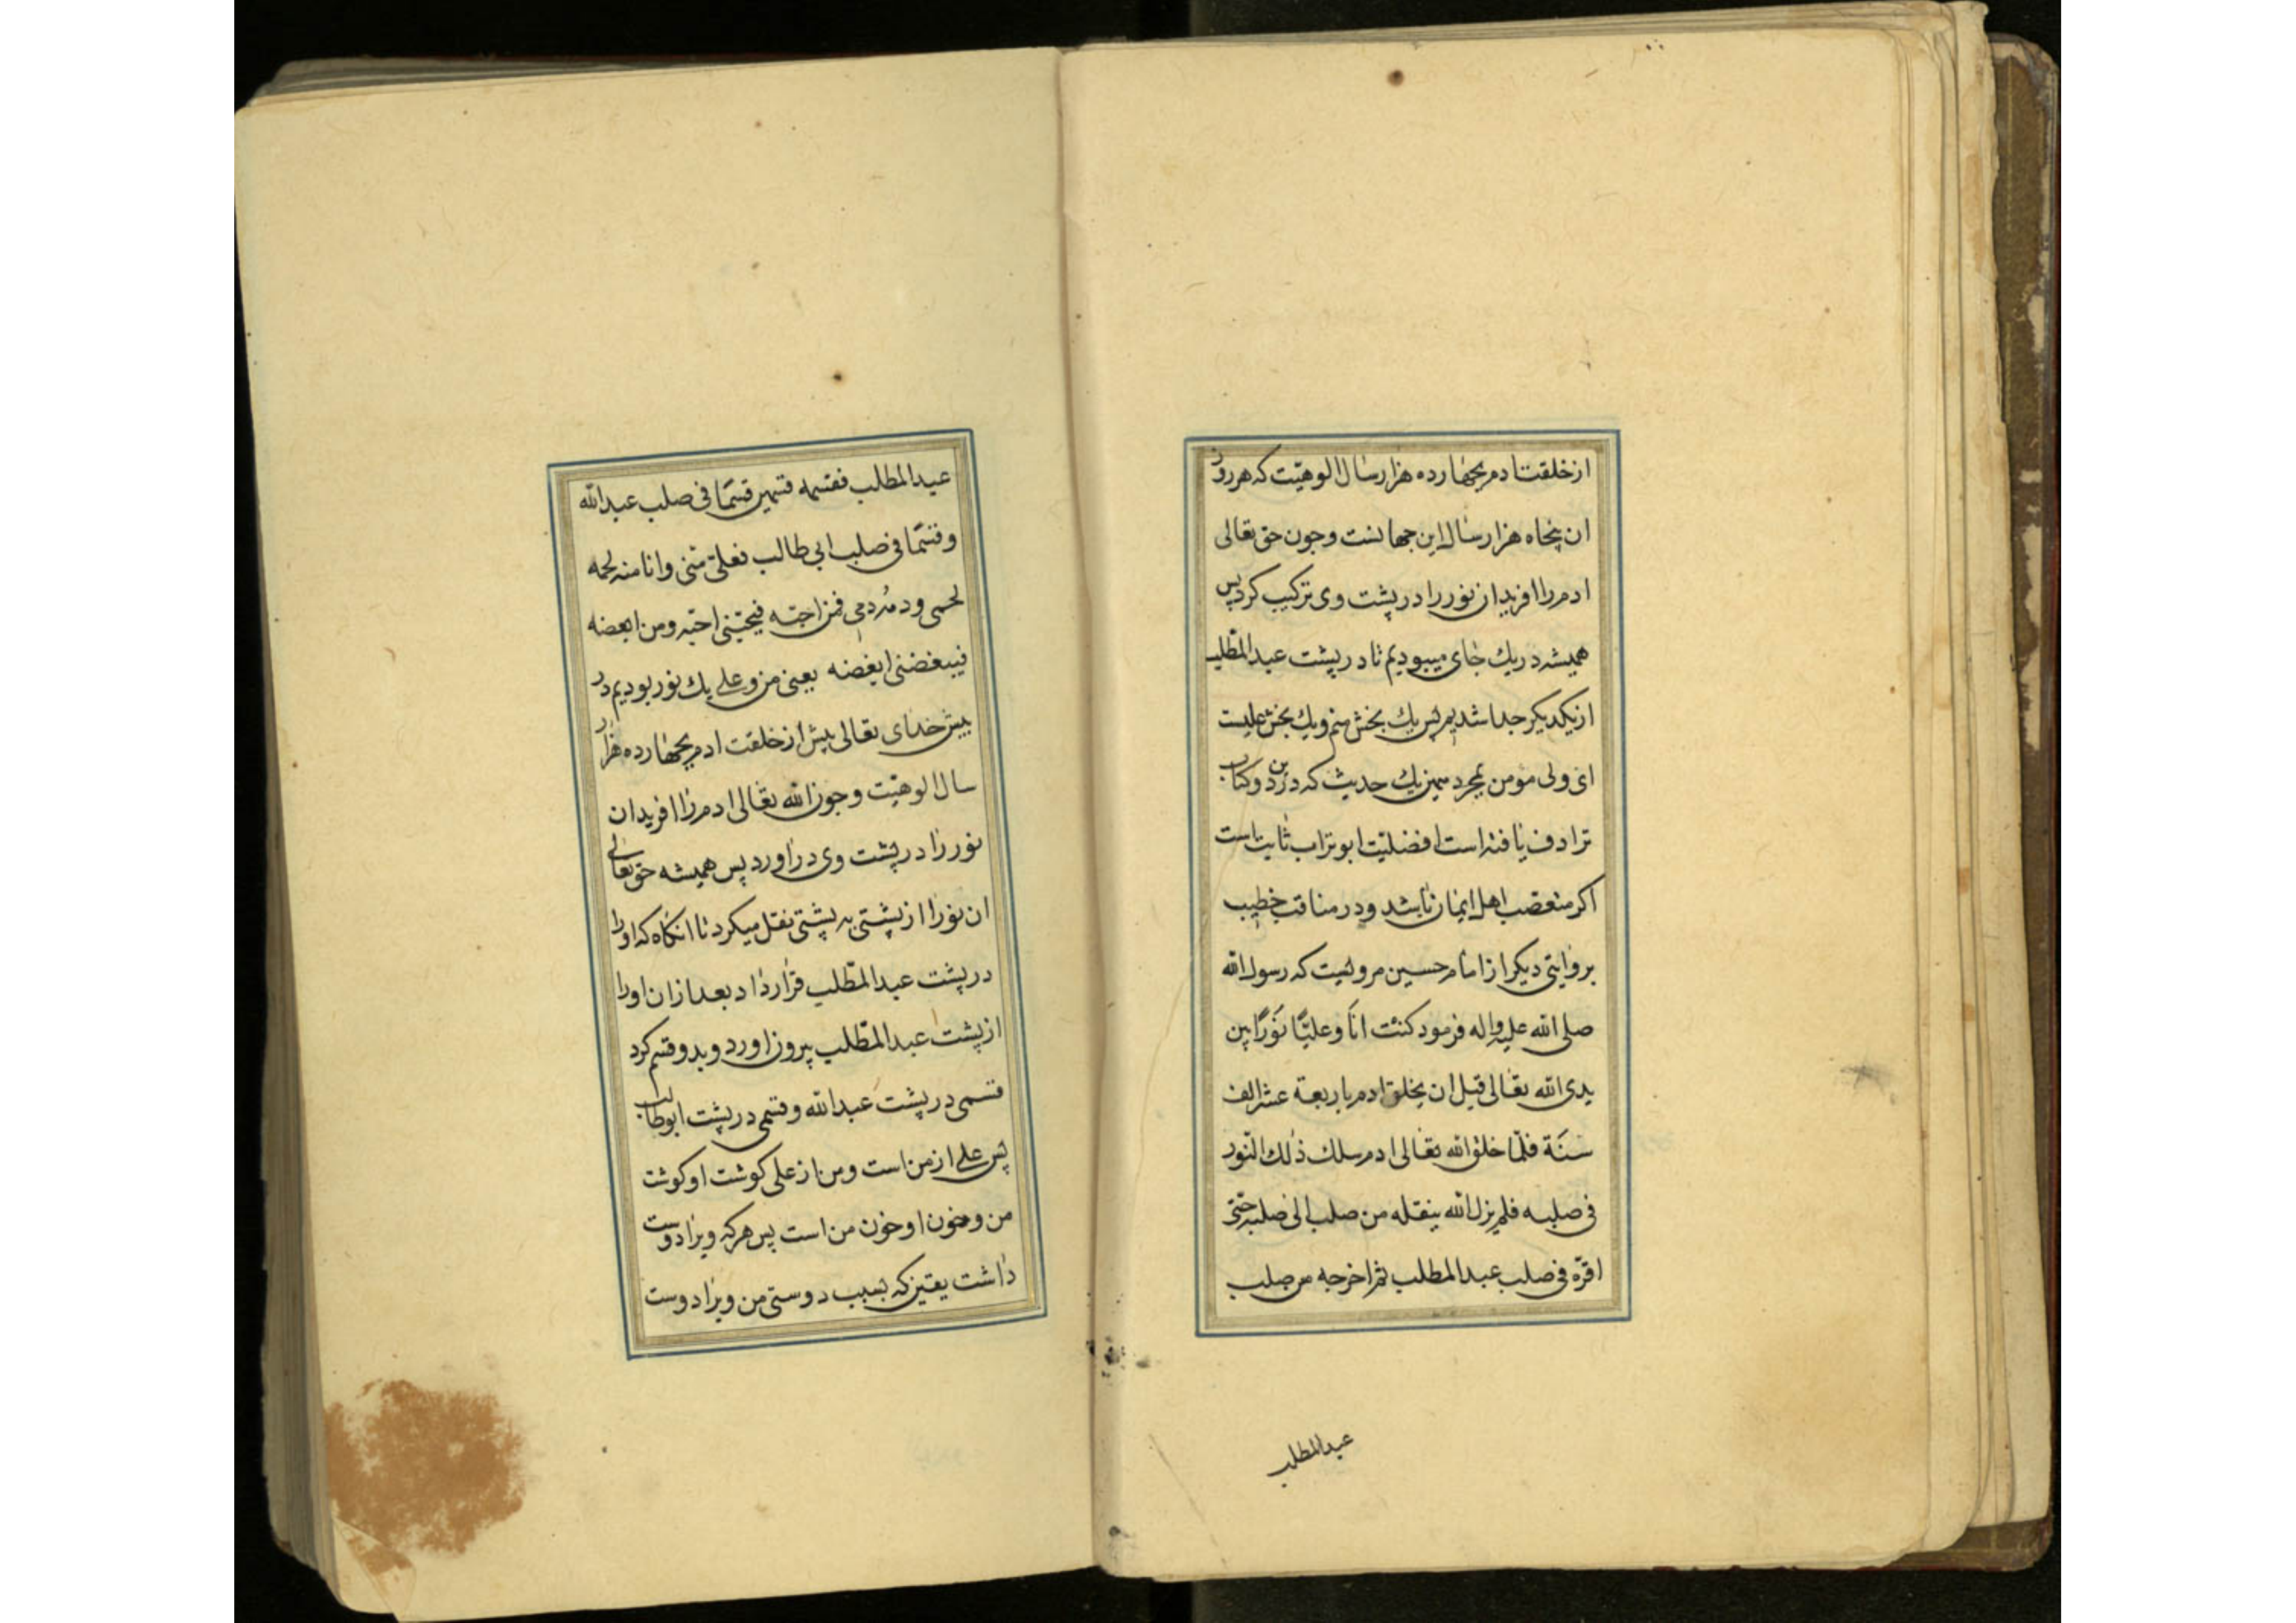 از خلقت ادم بچهارده هزار سال الوهیت که هر روز
ان پنجاه هزار سال این جهانست و چون حق تعالی
ادم را افرید ان نور را در پشت وی ترکیب کرد پس
همیشه در یک جای میبودیم تا در پشت عبدالمطلب
از یکدیکر جدا شدیم پس یک بخش منم و یک بخش علیست
ای ولی مومن بمجرد همین یک حدیث که درین دو کتاب
ترادف یافته است افضلیت ابوتراب ثابت است
اکر متعصب اهل ایمان باشد و در مناقب خطیب
بروایتی دیکر از امام حسین مرویست که رسول الله
صلی الله علیه واله فرمود کنت انا وعلیا نورا بین
یدی الله تعالی قبل ان یخلق ادم باربعة عشر الف
سنة فلما خلق الله تعالی ادم سلک ذلک النور
فی صلبه فلم یزل الله ینقله من صلب الی صلب حتی
اقره فی صلب عبدالمطلب ثم اخرجه من صلب
عبدالمطلب
عبدالمطلب فقسمه قسمین قسما فی صلب عبدالله
وقسما فی صلب ابی طالب فعلی منی وانا منه لحمه
لحمی ودمه دمی فمن احبه فیحبنی احبه ومن ابغضه
فیبغضنی ابغضه یعنی من و علی یک نور بودیم در
پیش خدای تعالی پیش از خلقت ادم بچهارده هزار
سال الوهیت و چون الله تعالی ادم را افرید ان
نور را در پشت وی دراورد پس همیشه حق تعالی
ان نور را از پشتی به پشتی نقل میکرد تا انکاه که او را
در پشت عبدالمطلب قرار داد بعد ازان او را
از پشت عبدالمطلب بیرون اورد و بدو قسم کرد
قسمی در پشت عبدالله و قسمی در پشت ابوطالب
پس علی از من است و من از علی کوشت او کوشت
من و خون او خون من است پس هر که ویرا دوست
داشت یقین که بسبب دوستی من ویرا دوست